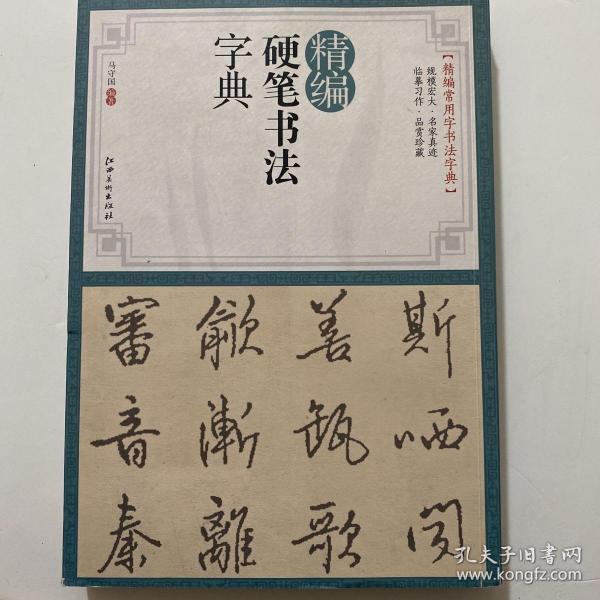 【精编常用字书法字典】
规模宏大·名家真迹
临摹习作·品赏珍藏
精编
硬笔书法
字典
马守国 编著
江西美术出版社
斯哂閲
善甄歌
歙漸離
審音秦
孔夫子旧书网
www.kongfz.com